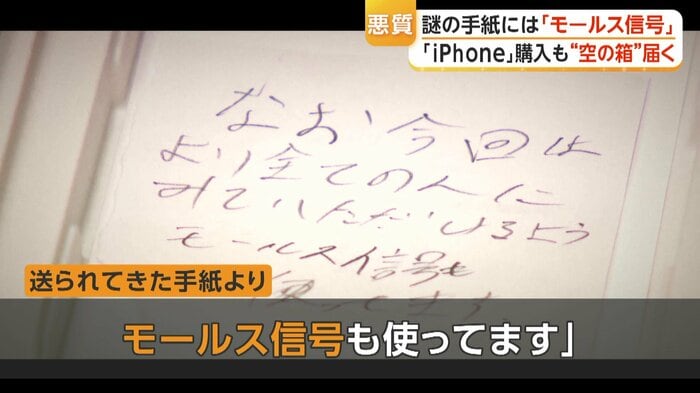 悪質
謎の手紙には「モールス信号」
「iPhone」購入も“空の箱”届く
なお、今回は
より全ての人に
みていただいてるよう
モールス信号も
使ってます
送られてきた手紙より
モールス信号も使ってます」